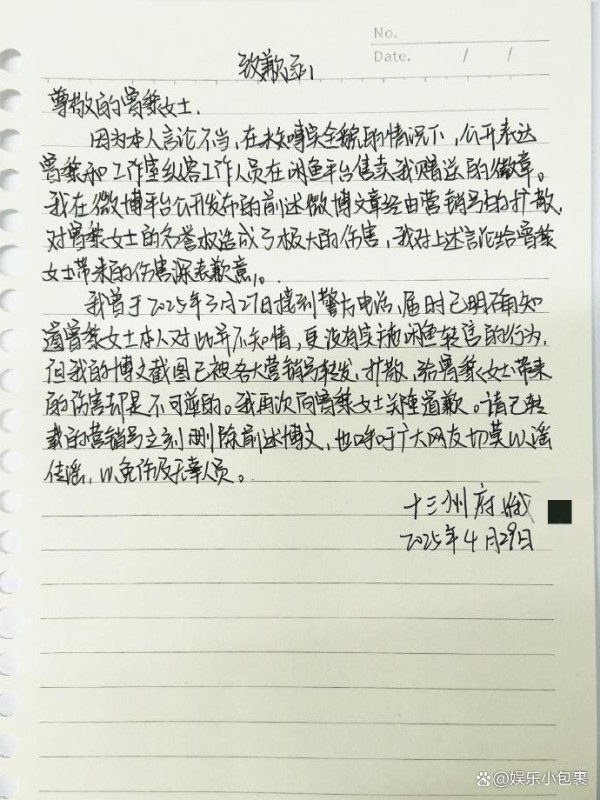 No.
Date. / /
致歉函
尊敬的曾黎女士.
因为本人言论不当,在未知晓全貌的情况下,公开表达
曾黎和工作室纵容工作人员在闲鱼平台售卖我赠送的徽章。
我在微博平台公开发布的前述微博文章经由营销号的扩散,
对曾黎女士的名誉权造成了极大的伤害,我对上述言论给曾黎
女士带来的伤害深表歉意。
我曾于2025年3月27日接到警方电话,届时已明确知
道曾黎女士本人对此并不知情,更没有实施闲鱼转售的行为,
但我的博文截图已被各大营销号转发、扩散,给曾黎女士带来
的伤害却是不可逆的。我再次向曾黎女士郑重道歉。请已转
载的营销号立刻删除前述博文,也呼吁广大网友切莫以谣
传谣,以免伤及无辜人员。
十三州府
2025年4月29日
@娱乐小包裹